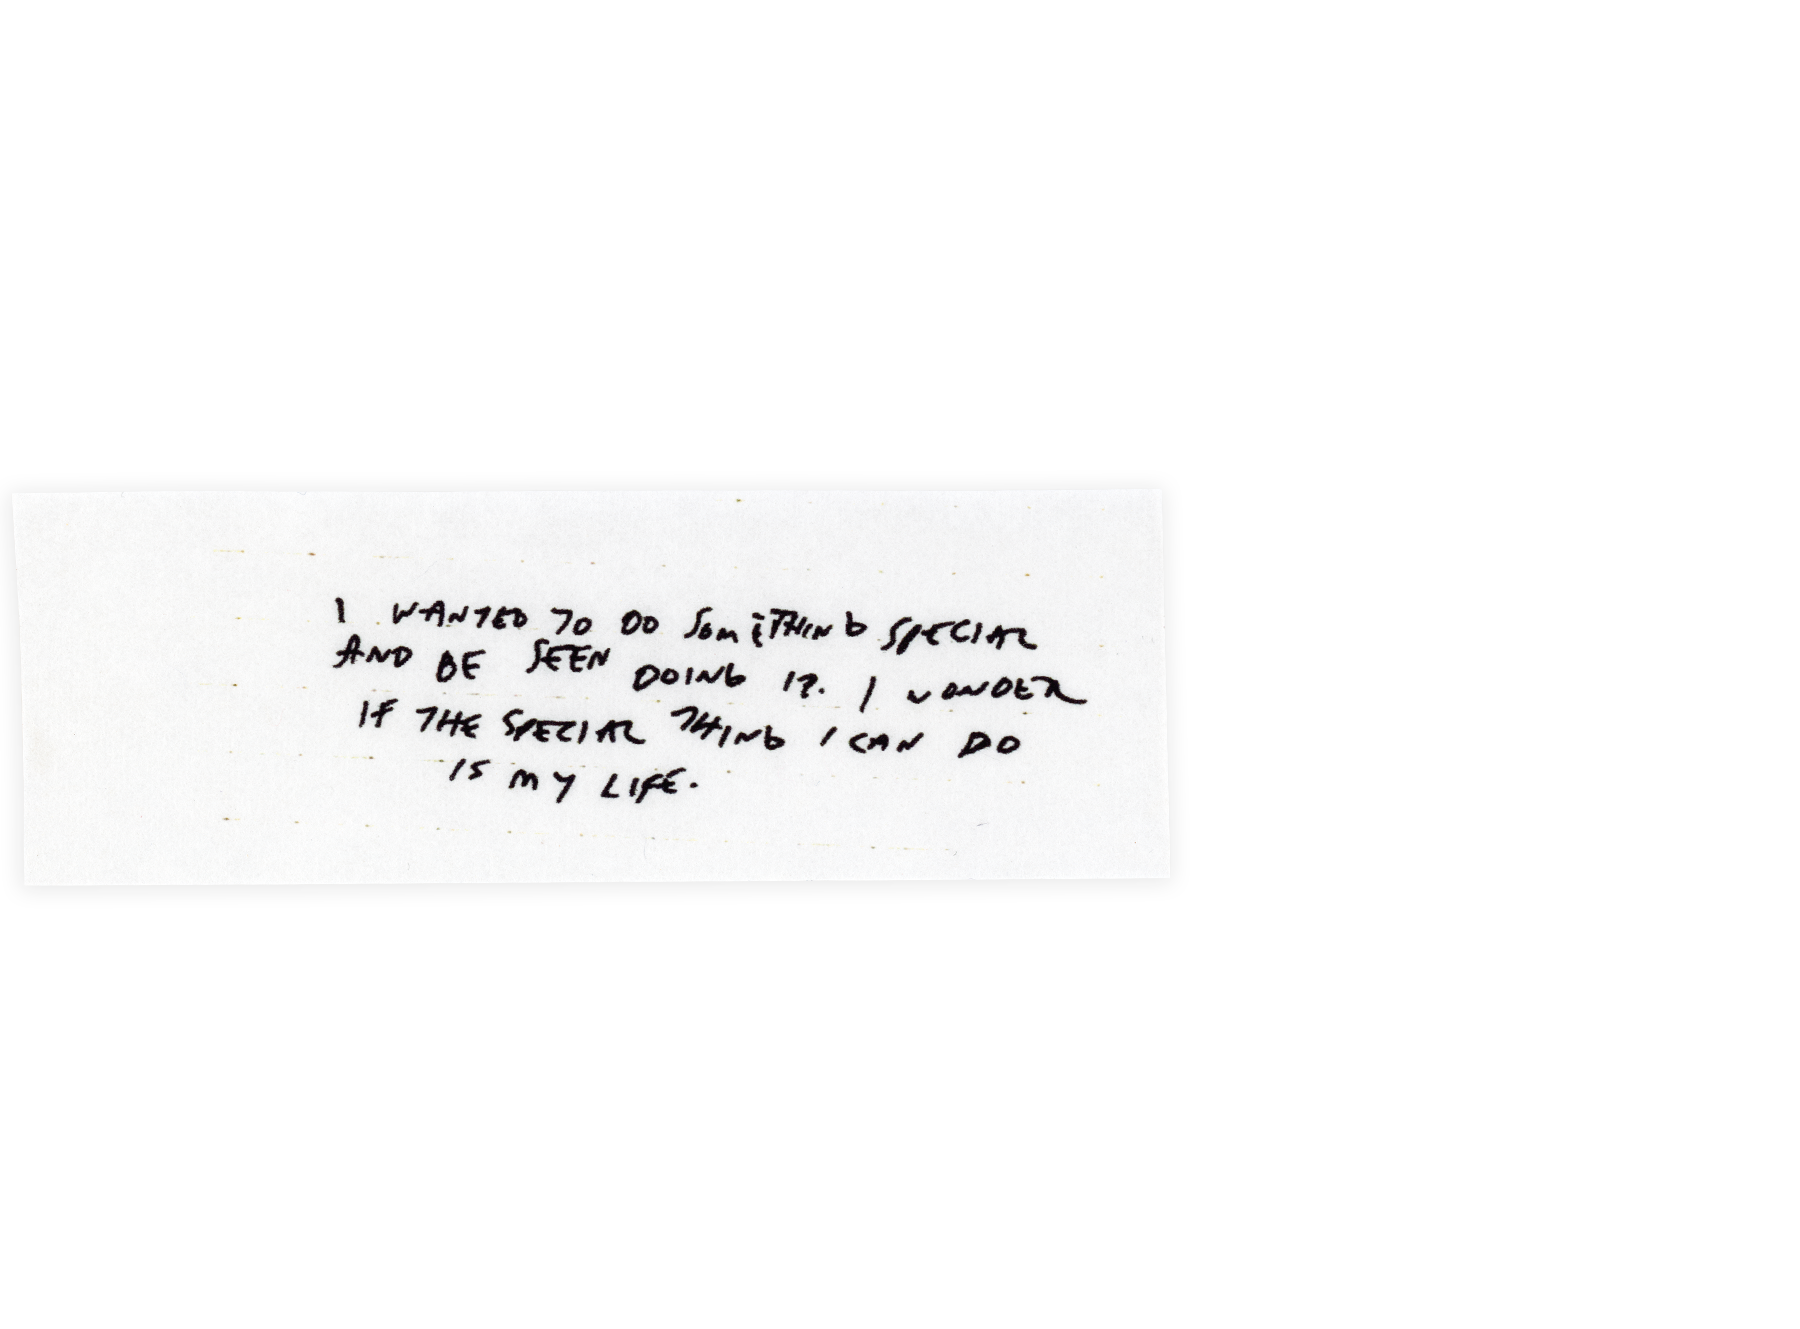 I WANTED TO DO SOMETHING SPECIAL
AND BE SEEN DOING IT. I WONDER
IF THE SPECIAL THING I CAN DO
IS MY LIFE.